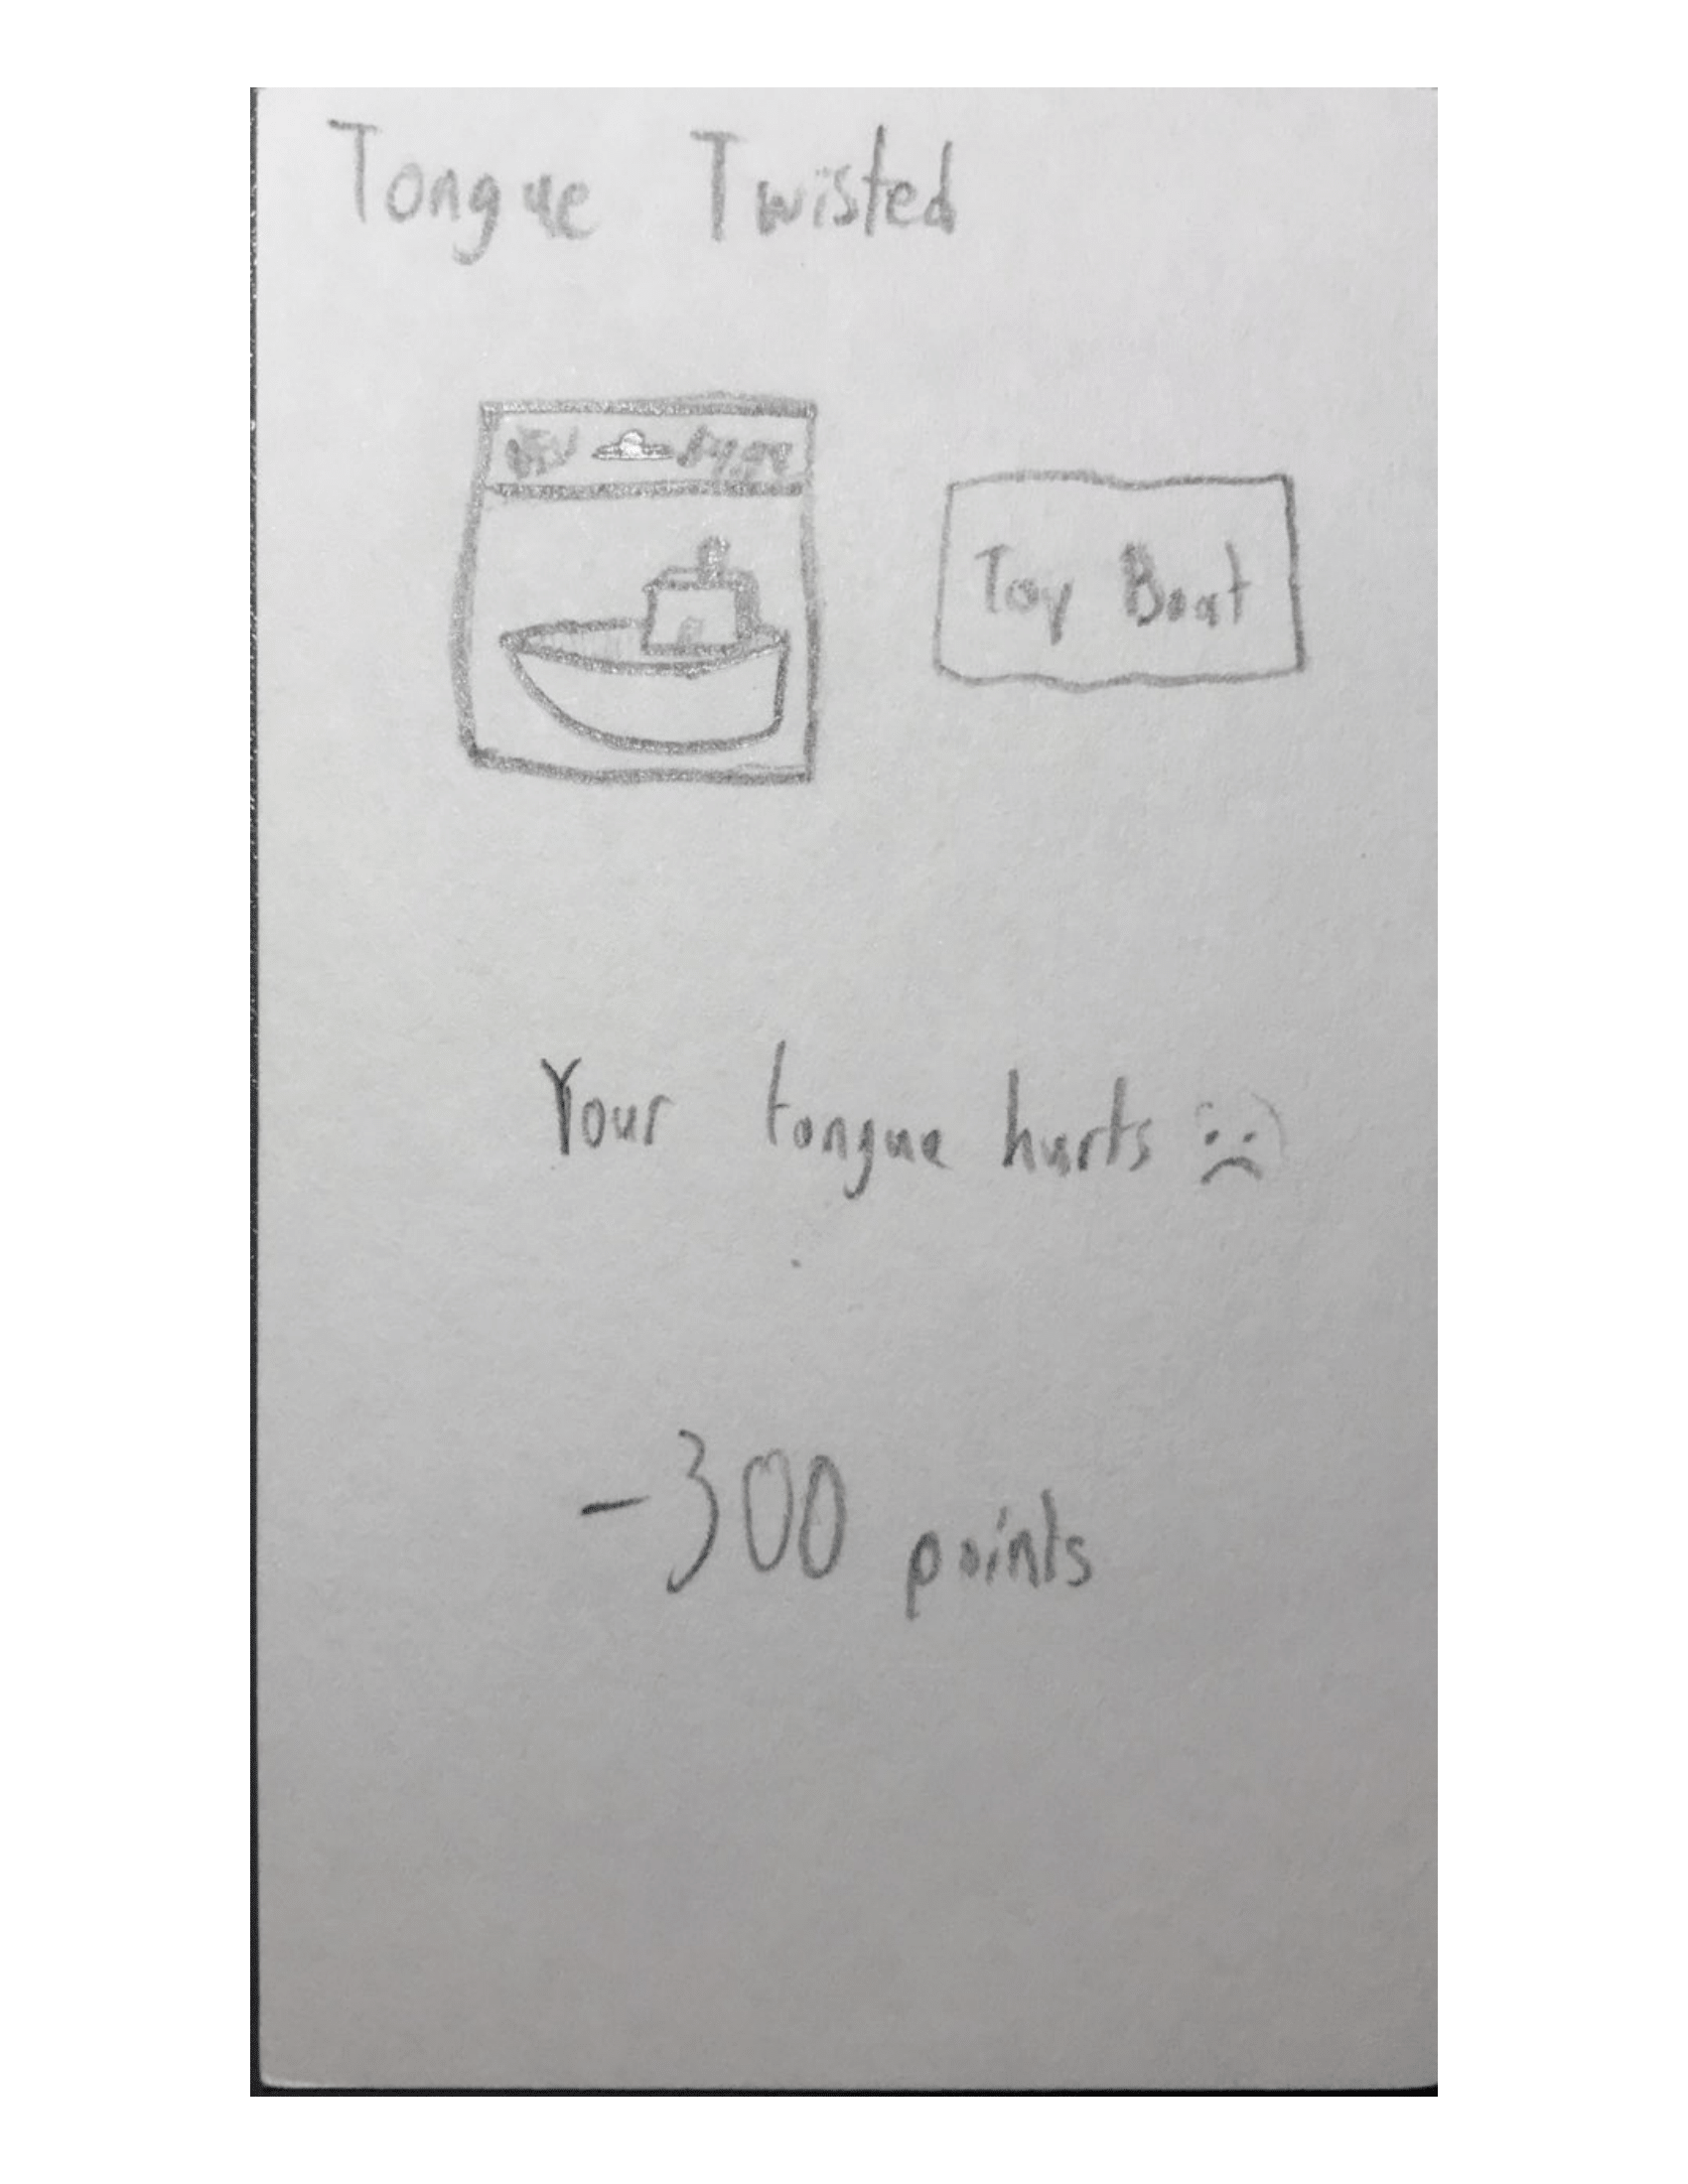 Tongue Twisted
NEW
Toy Boat
Your tongue hurts :(
-300 points